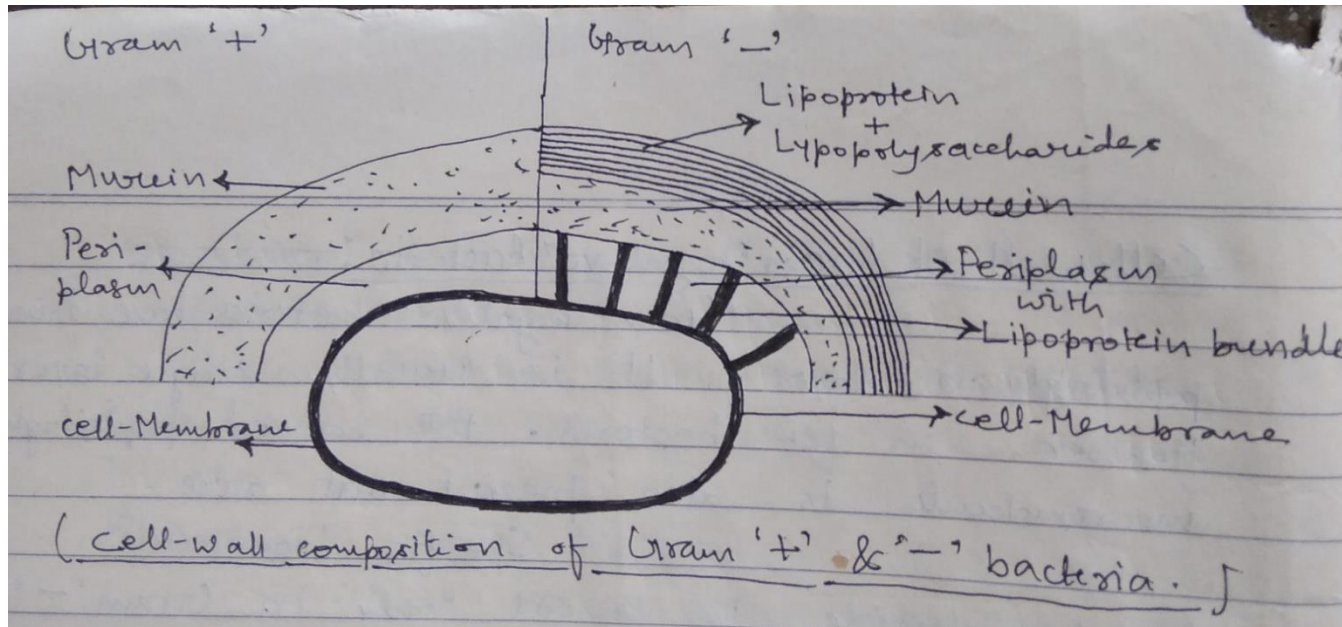 Gram '+'
Gram '-'
Lipoprotein
+
Lypopolysaccharides
Murein
Murein
Peri-
plasm
Periplasm
with
Lipoprotein bundle
cell-Membrane
cell-Membrane
( cell-wall composition of Gram '+' & '-' bacteria. )